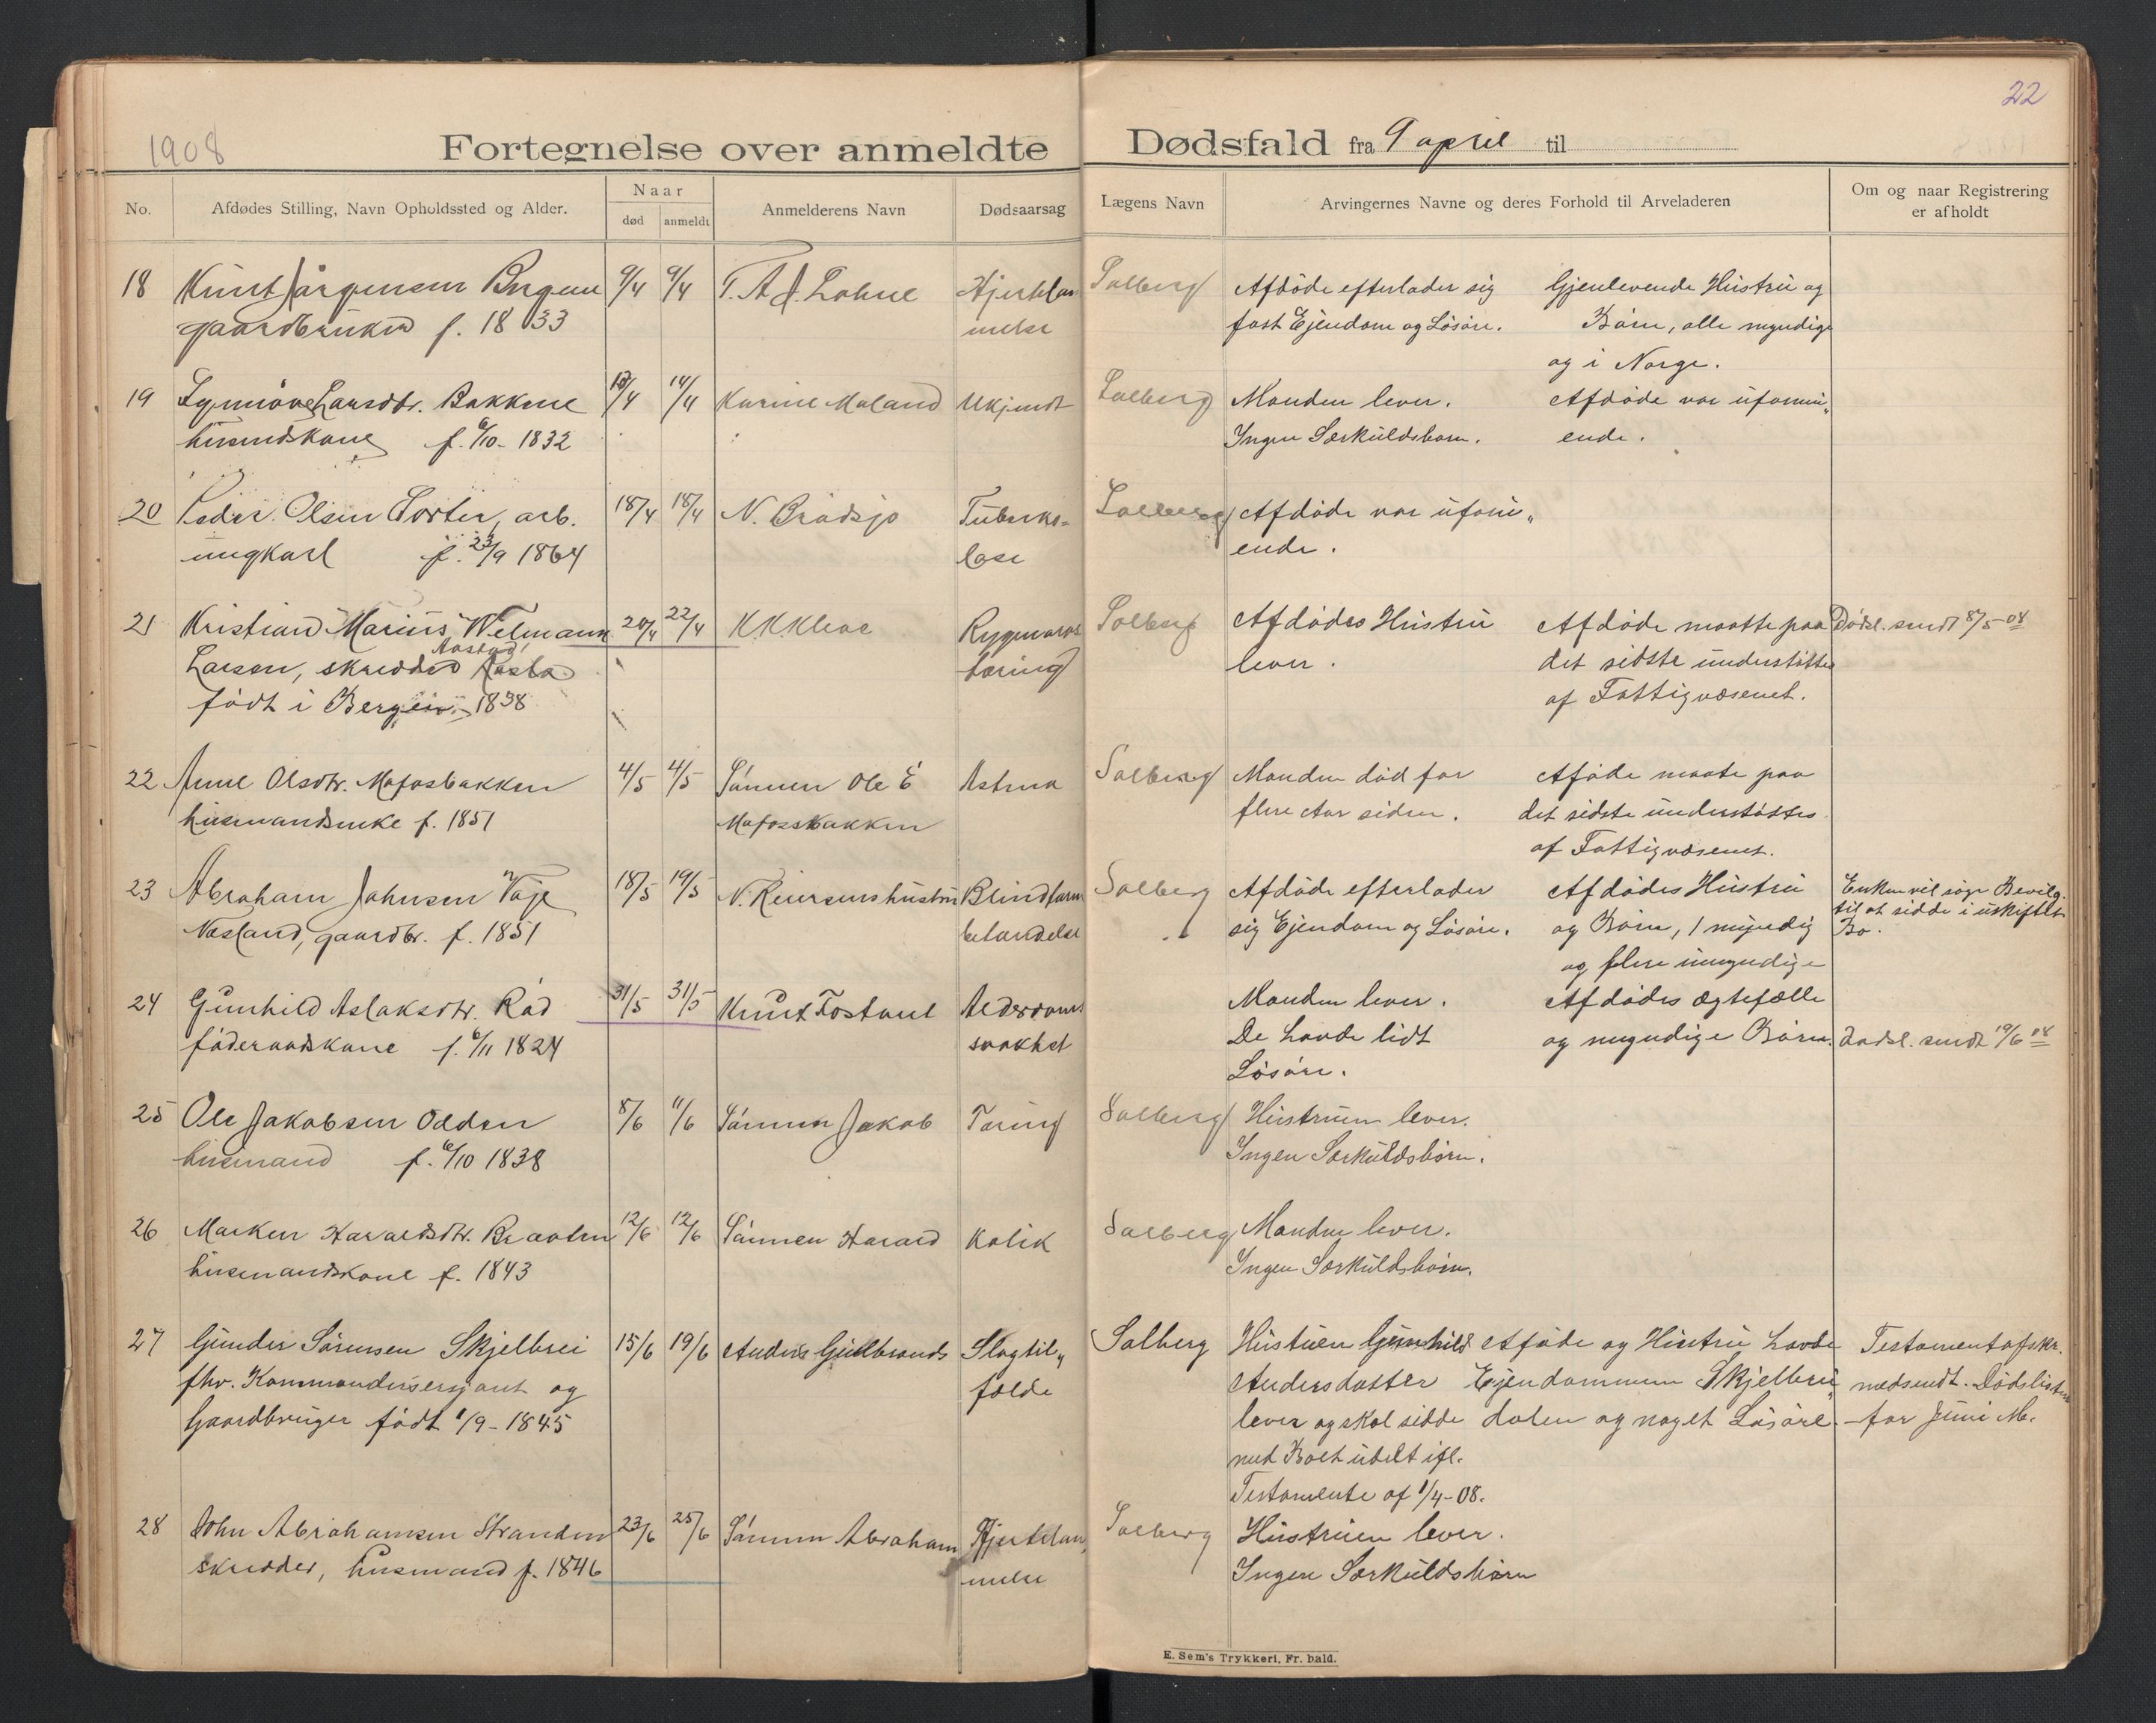 22
1908
Fortegnelse over anmeldte Dødsfald fra 9 april til
No.
Afdødes Stilling, Navn Opholdssted og Alder.
Naar
død
anmeldt
Anmelderens Navn
Dødsaarsag
Lægens Navn
Arvingernes Navne og deres Forhold til Arveladeren
Om og naar Registrering
er afholdt
18 Knut Jørgensen 9/4 9/4 Hjertelam
gaardbruker f. 1833
melse
Solberg
Afdøde efterlader sig
fast Ejendom og Løsøre.
Gjenlevende Hustru og
Børn, alle myndige
og i Norge.
19 Synnøve Larsdtr. Bakkene 13/4 14/4 Karine Moland Ukjendt
husmandskone f. 6/10 - 1832
Solberg
Manden lever.
Ingen Særkuldsbørn.
Afdøde var uformu„
ende.
20 Peder Olsen arb. 18/4 18/4 N. Brødsjø Tuberku=
ungkarl f. 23/9 1864
lose
Solberg
Afdøde var uformu„
ende.
21 Kristian Marius Welmann 20/4 22/4 K K Kleve Rygmarvs
Larsen, skredder
født i Bergen 1838
tæring
Solberg
Afdødes Hustru
lever.
Afdøde maatte paa
det sidste understøttes
af Fattigvæsenet.
Dødsl. sendt 8/5 08
22 Anne Olsdtr. Mofosbakken 4/5 4/5 Sønnen Ole E Astma
husmandsenke f. 1851
Mofossbakken
Solberg
Manden død for
flere Aar siden.
Aføde maate paa
det sidste understøttes
af Fattigvæsenet.
23 Abraham Johnsen Vaje 18/5 19/5 N. Reiersens hustru Blindtarm
Næsland, gaardbr. f. 1851
betændelse
Solberg
Afdøde efterlader
sig Ejendom og Løsøre.
Afdødes Hustru
og Børn, 1 myndig
og flere umyndige
Enken vil søge Bevilg.
til at sidde i uskiftet
Bo.
24 Gunhild Aslaksdtr. Rød 31/5 31/5 Knut Fostvet Alderdoms
føderaadskone f. 6/11 1824
svakhet
Manden lever.
De havde lidt
Løsøre.
Afdødes Ægtefælle
og myndige Børn.
Dødsl. sendt 19/6 08
25 Ole Jakobsen Odden 8/6 11/6 Sønnen Jakob Tæring
husmand f. 6/10 1838
Solberg
Hustruen lever.
Ingen Særkuldsbørn.
26 Marken Haraldsdtr. Braaten 12/6 12/6 Sønnen Harald Kolik
husmandskone f. 1843
Solberg
Manden lever.
Ingen Særkuldsbørn.
27 Gunder Sørensen Skjelbrei 15/6 19/6 Anders Gullbrands Slagtil„
fhv. Kommandersergant og
fælde
Gaardbruger født 1/9 - 1845
Solberg
Hustruen Gunhild
Andersdatter
lever og skal sidde
med Boet udelt ifl.
Testamente af 1/4-08.
Aføde og Hustru havde
Ejendommen Skjelbrei„
dalen og noget Løsøre.
Testamentafskr.
nedsendt. Dødslisten
for Juni M.
28 John Abrahamsen Stranden 23/6 25/6 Sønnen Abraham Hjertelam„
skredder, husmand f. 1846
melse
Solberg
Hustruen lever.
Ingen Særkuldsbørn
E. Sem's Trykkeri, Fr. hald.